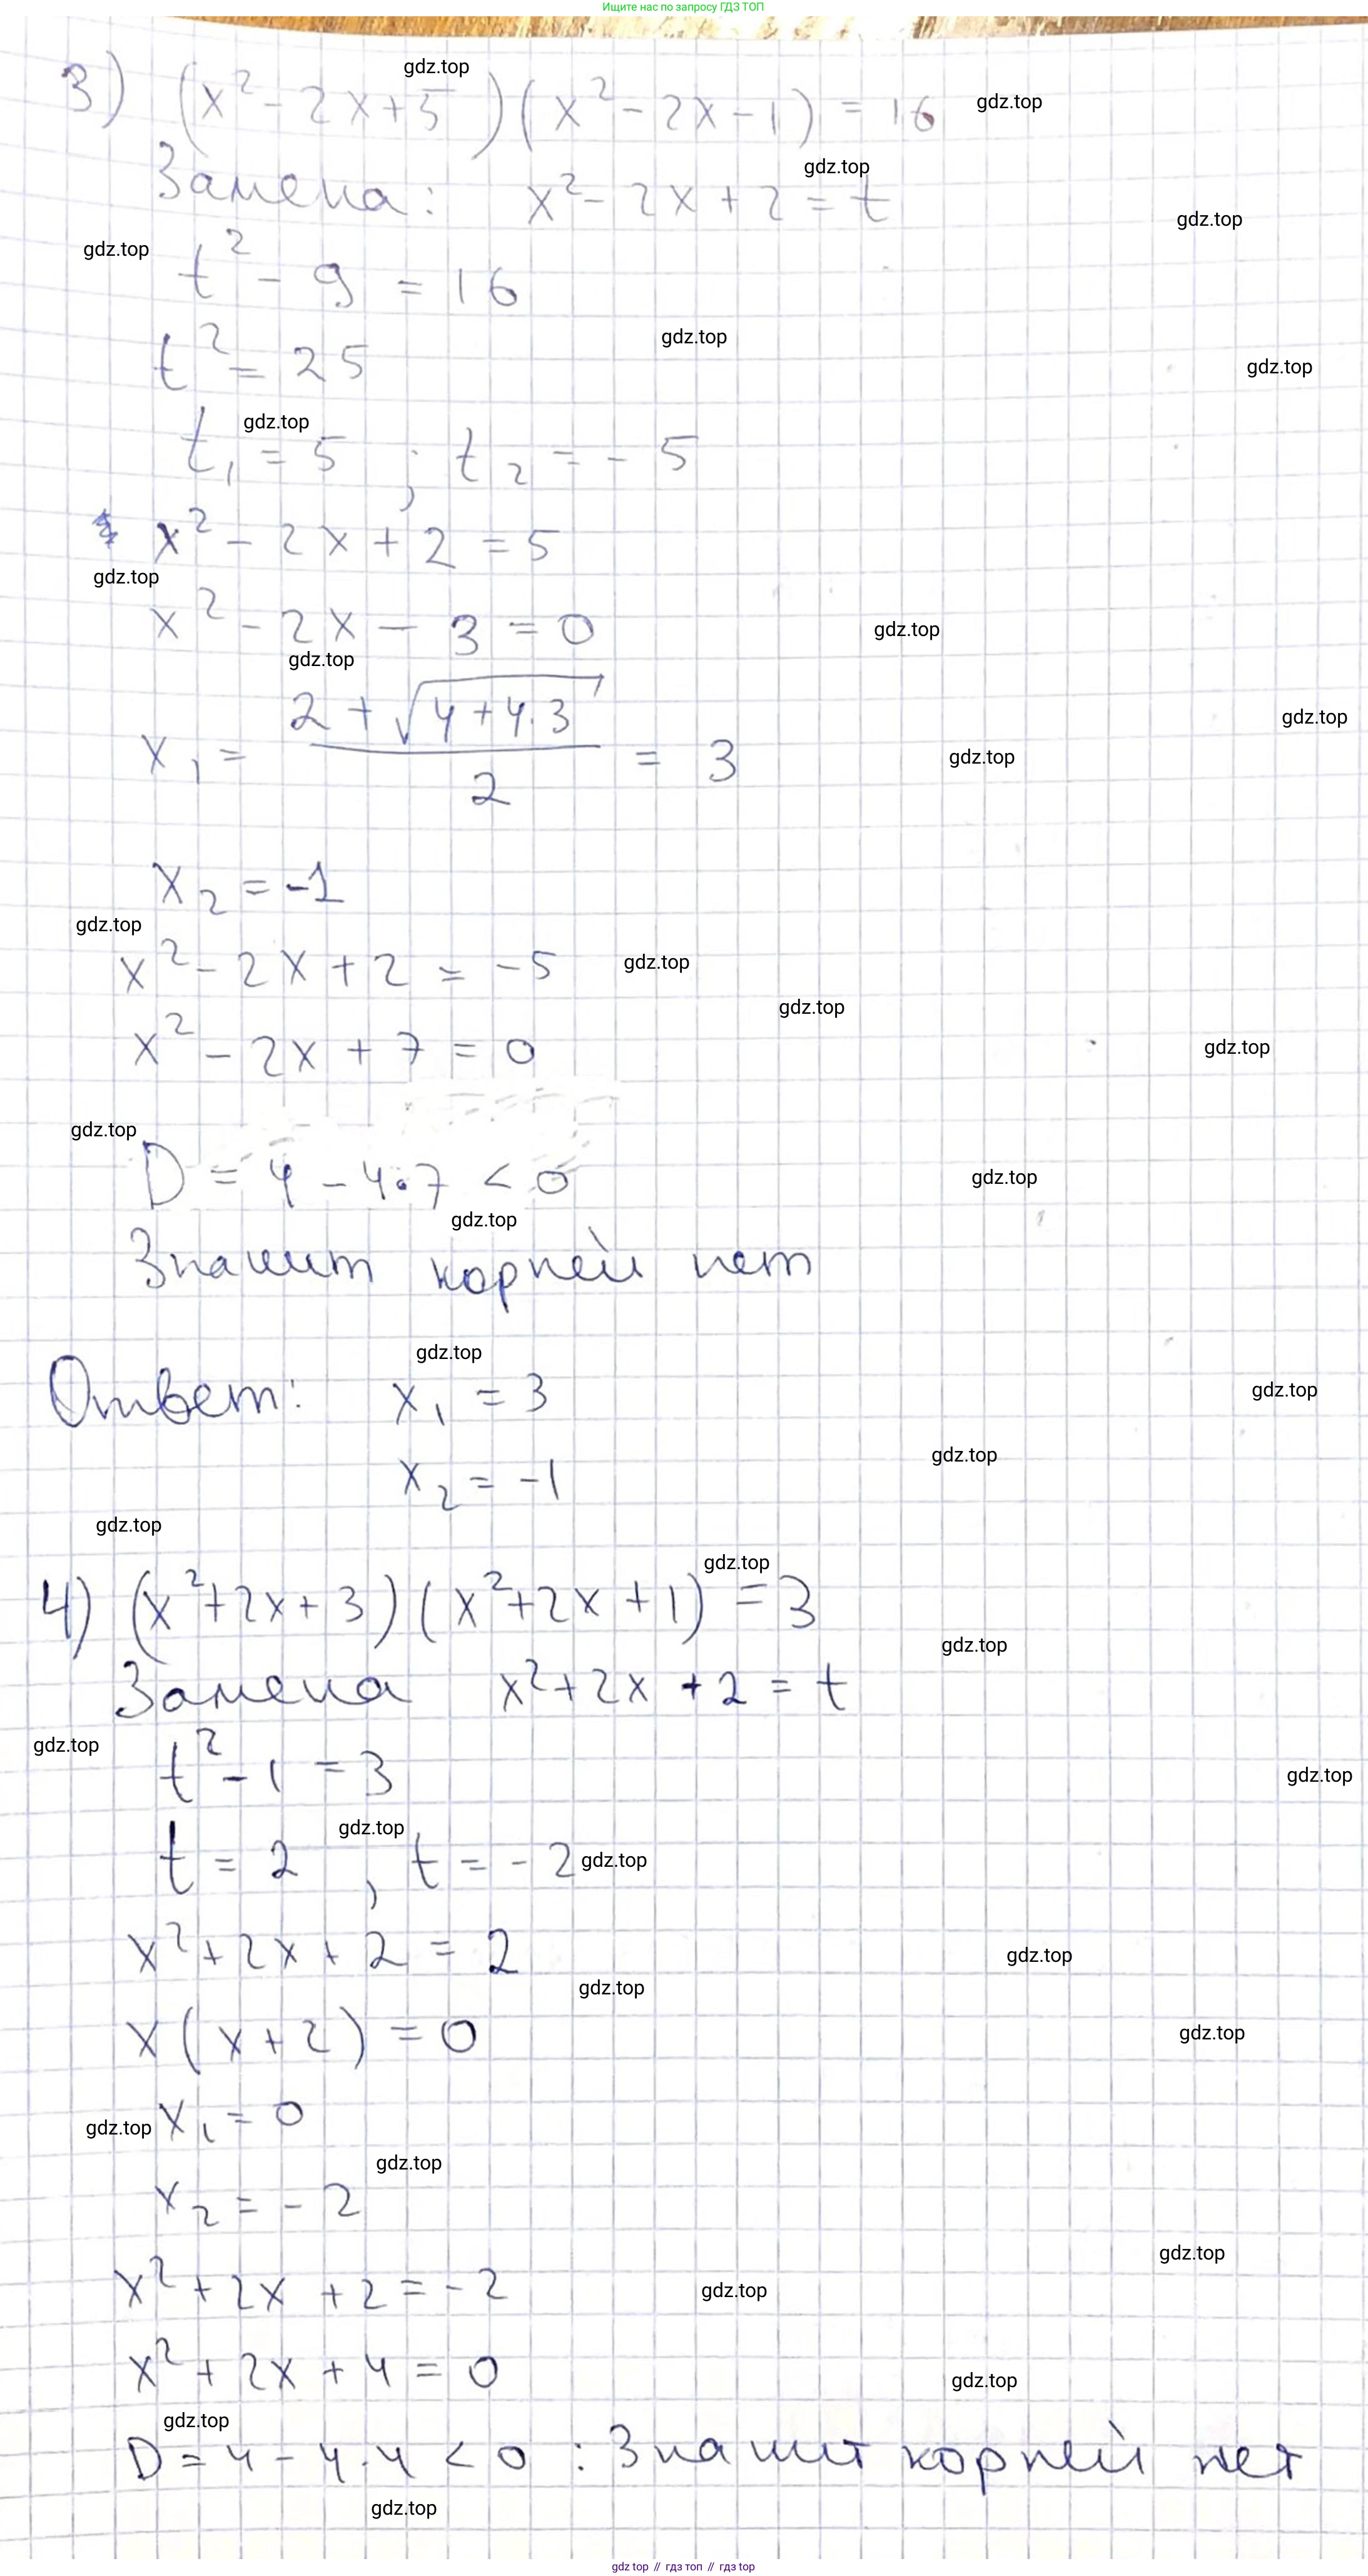 Ищите нас по запросу ГДЗ ТОП
gdz.top
3) (x² - 2x + 5)(x² - 2x - 1) = 16
gdz.top
gdz.top
Замена: x² - 2x + 2 = t
gdz.top
gdz.top
t² - 9 = 16
gdz.top
t² = 25
gdz.top
gdz.top
t₁ = 5 ; t₂ = -5
x² - 2x + 2 = 5
gdz.top
x² - 2x - 3 = 0
gdz.top
gdz.top
x₁ = (2 + √(4 + 4·3)) / 2 = 3
gdz.top
gdz.top
x₂ = -1
gdz.top
x² - 2x + 2 = -5
gdz.top
gdz.top
x² - 2x + 7 = 0
gdz.top
gdz.top
D = 4 - 4·7 < 0
gdz.top
gdz.top
Значит корней нет
gdz.top
Ответ: x₁ = 3
gdz.top
gdz.top
x₂ = -1
gdz.top
gdz.top
4) (x² + 2x + 3)(x² + 2x + 1) = 3
gdz.top
Замена x² + 2x + 2 = t
gdz.top
t² - 1 = 3
gdz.top
gdz.top
t = 2 , t = -2
gdz.top
x² + 2x + 2 = 2
gdz.top
gdz.top
x(x + 2) = 0
gdz.top
gdz.top
x₁ = 0
gdz.top
x₂ = -2
gdz.top
x² + 2x + 2 = -2
gdz.top
x² + 2x + 4 = 0
gdz.top
gdz.top
D = 4 - 4·4 < 0 : Значит корней нет
gdz.top
gdz.top // гдз топ // гдз top